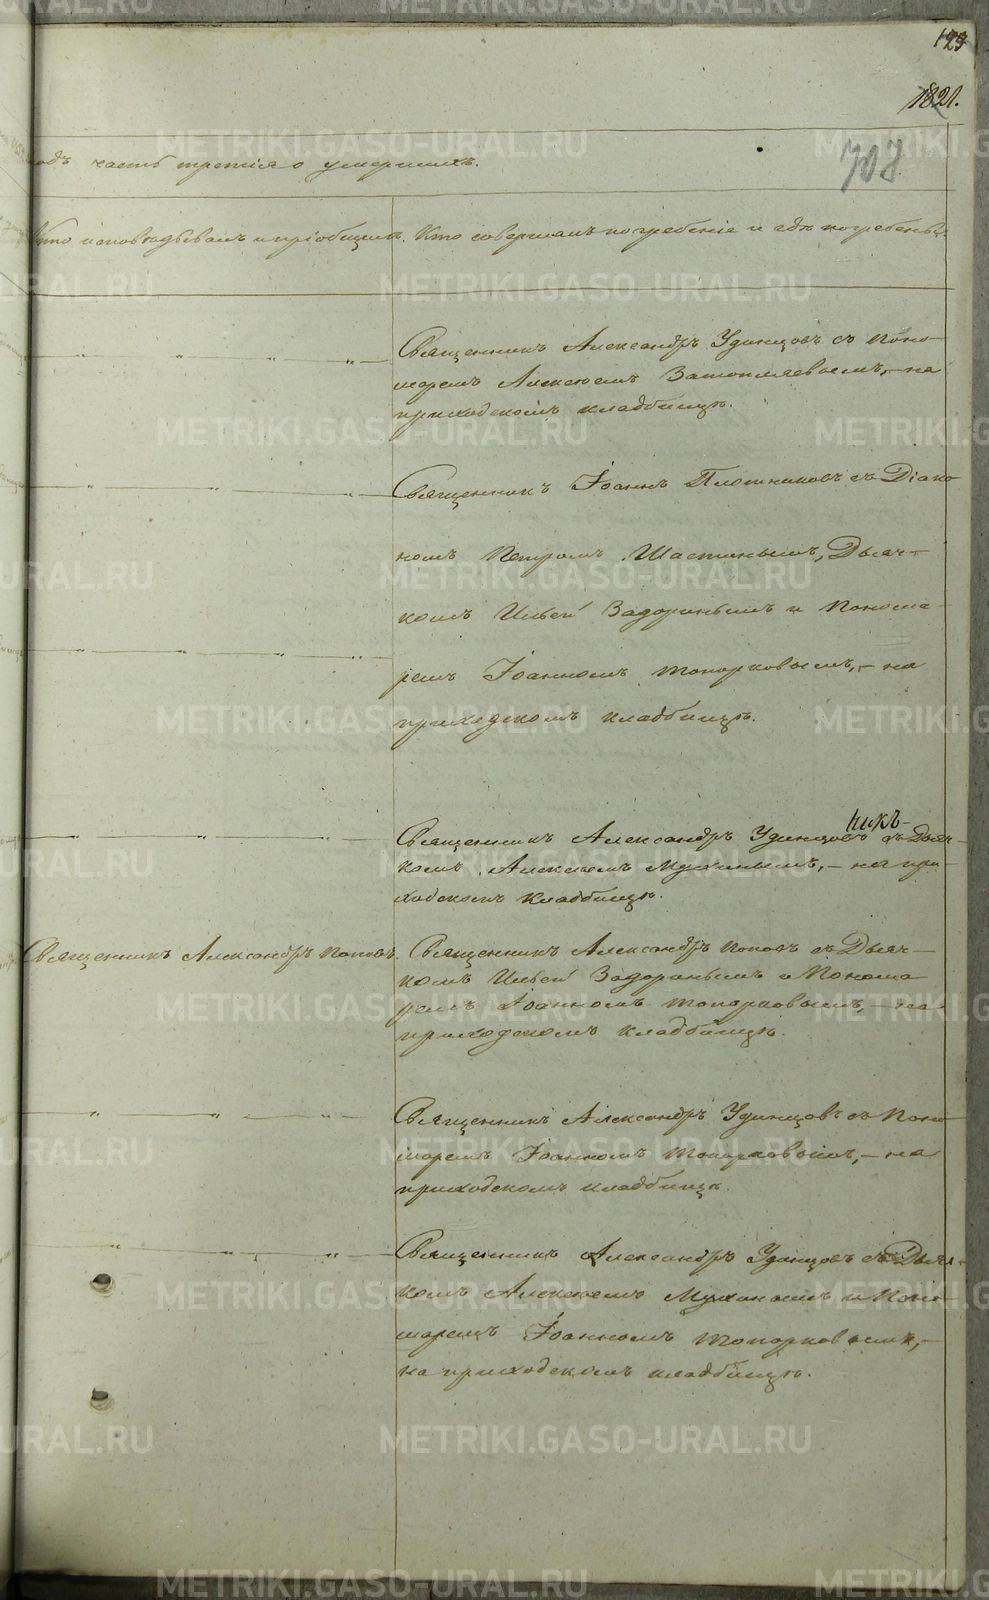 123
1821.
707
одъ часть третія о умершихъ.
Кто исповѣдывалъ и пріобщилъ. Кто совершалъ погребеніе и гдѣ погребены.
Священникъ Александръ Удинцовъ съ Поно-
маремъ Алексѣемъ Затопляевымъ, - на
приходскомъ кладбищѣ.
Священникъ Іоаннъ Плотниковъ съ Діако
номъ Петромъ Шастинымъ, Дьяч-
комъ Ильей Задоринымъ и Понома-
ремъ Іоанномъ Топорковымъ, - на
приходскомъ кладбищѣ.
никъ-
Священникъ Александръ Удинцовъ съ Дьяч-
комъ Алексѣемъ Мухинымъ, - на при-
ходскомъ кладбищѣ.
Священникъ Александръ Поповъ. Священникъ Александръ Поповъ съ Дьяч-
комъ Ильей Задоринымъ и Понома
ремъ Іоанномъ Топорковымъ, на
приходскомъ кладбищѣ.
Священникъ Александръ Удинцовъ съ Поно-
маремъ Іоанномъ Топорковымъ, - на
приходскомъ кладбищѣ.
Священникъ Александръ Удинцовъ съ Дьяч-
комъ Алексѣемъ Мухинымъ и Поно-
маремъ Іоанномъ Топорковымъ, -
на приходскомъ кладбищѣ.
METRIKI.GASO-URAL.RU